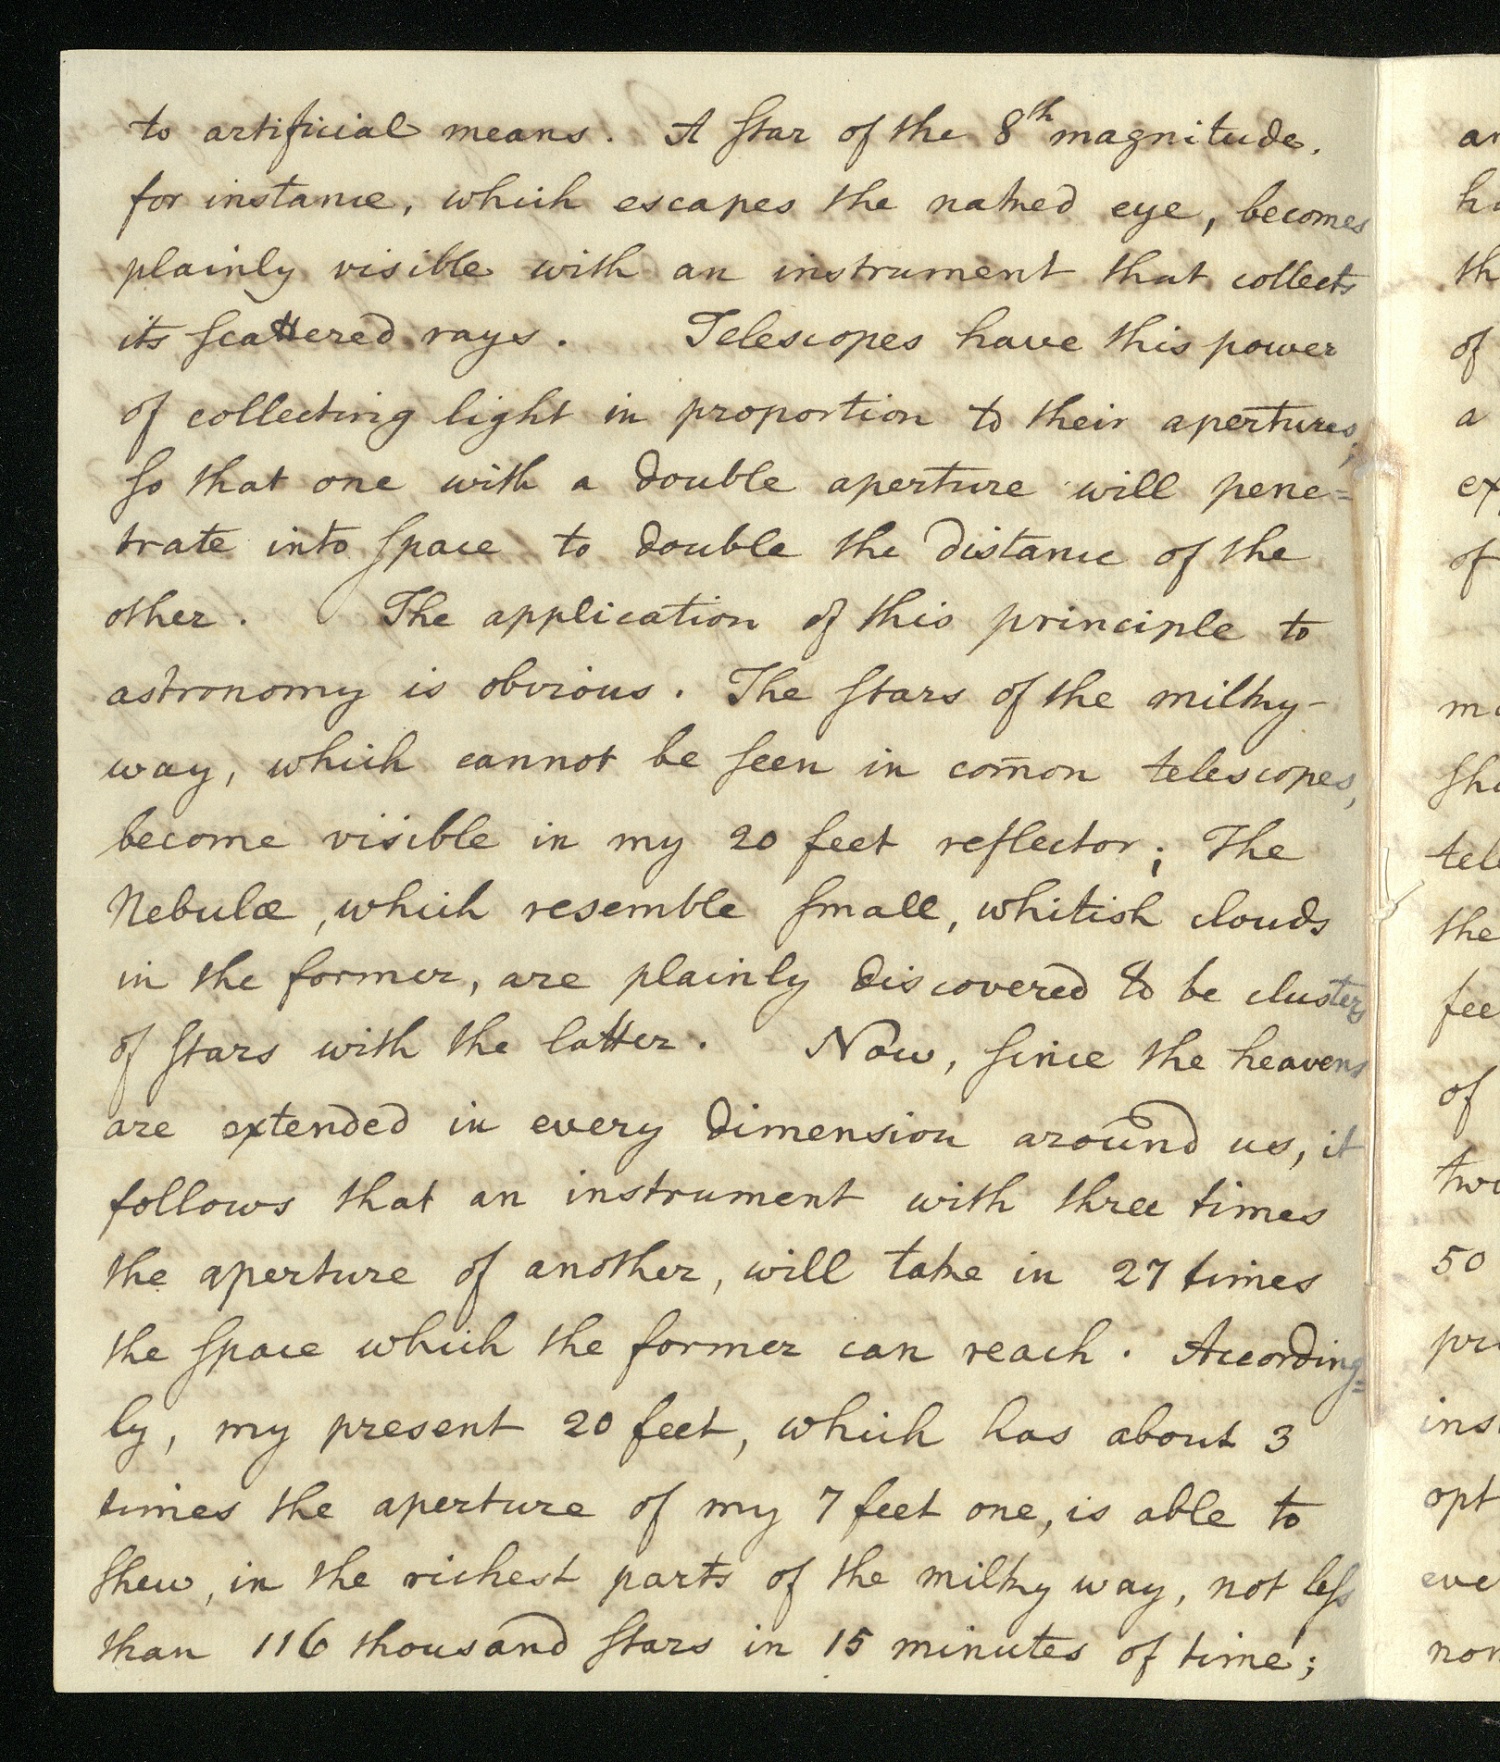 to artificial means. A star of the 8th magnitude,
for instance, which escapes the naked eye, becomes
plainly visible with an instrument that collects
its scattered rays. Telescopes have this power
of collecting light in proportion to their apertures,
so that one with a double aperture will pene=
trate into space to double the distance of the
other. The application of this principle to
astronomy is obvious. The stars of the milky-
way, which cannot be seen in com̄on telescopes,
become visible in my 20 feet reflector; The
Nebulæ, which resemble small, whitish clouds
in the former, are plainly discovered to be clusters
of stars with the latter. Now, since the heavens
are extended in every dimension around us, it
follows that an instrument with three times
the aperture of another, will take in 27 times
the space which the former can reach. According=
ly, my present 20 feet, which has about 3
times the aperture of my 7 feet one, is able to
shew, in the richest parts of the milky way, not less
than 116 thousand stars in 15 minutes of time;
of
a
of
the
of
50